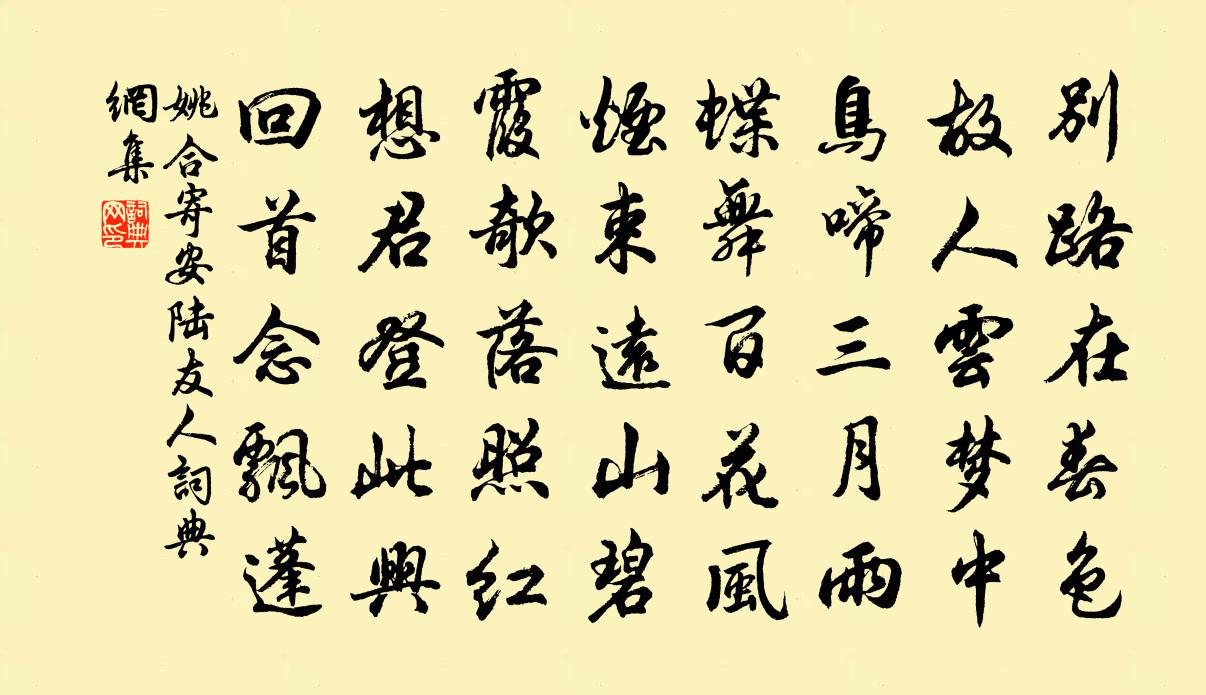 别路在春色
故人雲梦中
鳥啼三月雨
蝶舞百花風
煙束遠山碧
霞欹落照红
想君登此興
回首念飄蓬
姚合寄安陆友人詞典
網集
詞典
网印